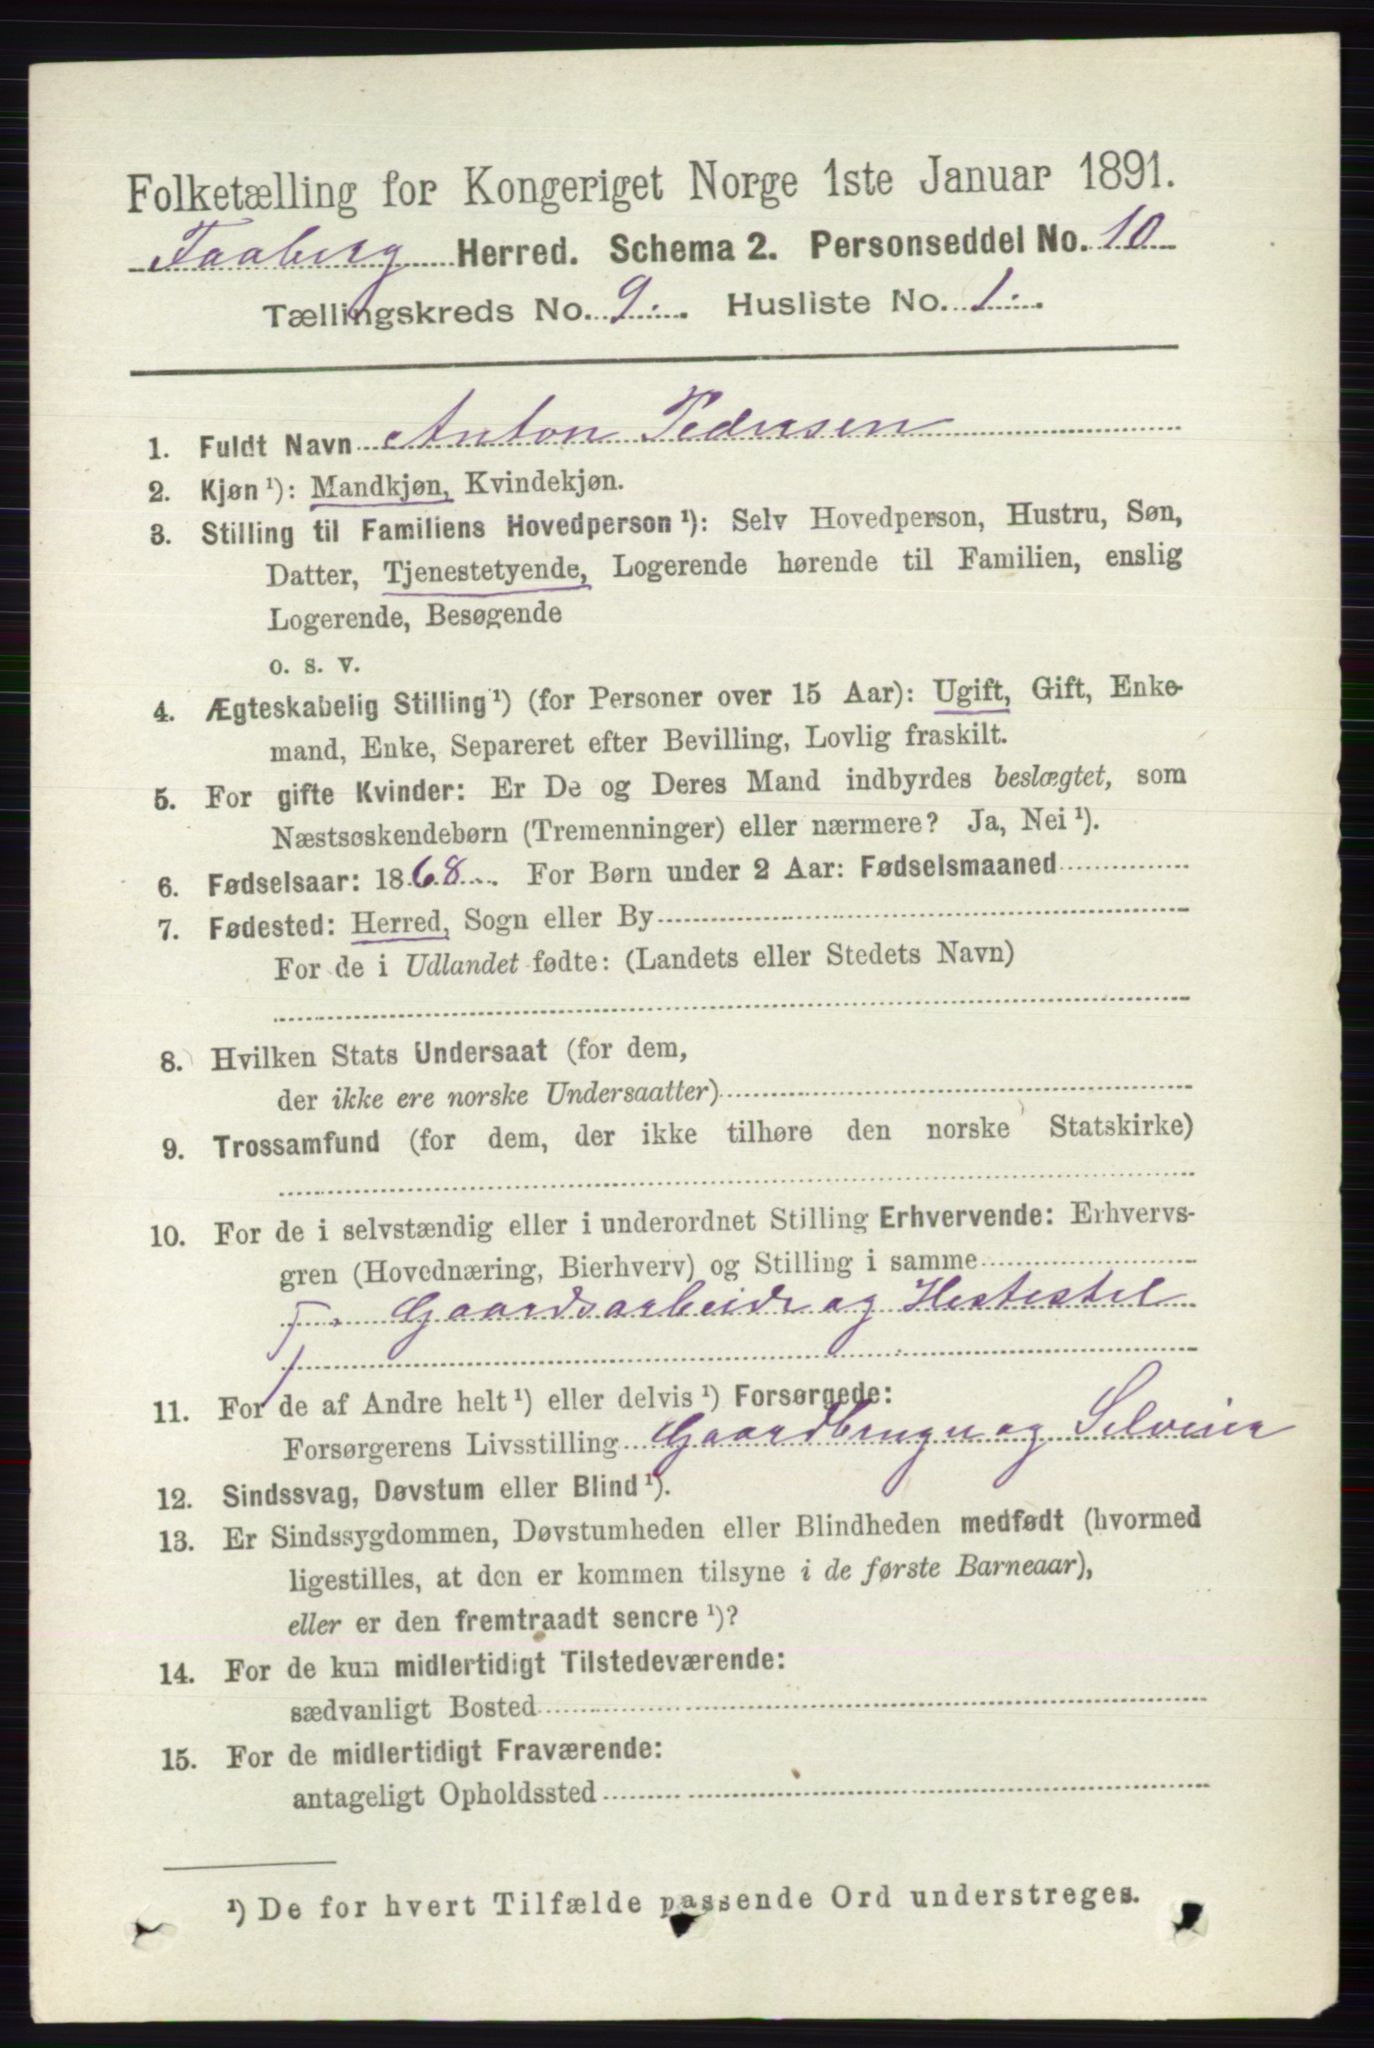 Folketælling for Kongeriget Norge 1ste Januar 1891.
Faaberg Herred. Schema 2. Personseddel No. 10
Tællingskreds No. 9. Husliste No. 1.
1. Fuldt Navn Anton Pedersen
2. Kjøn ¹): Mandkjøn, Kvindekjøn.
3. Stilling til Familiens Hovedperson ¹): Selv Hovedperson, Hustru, Søn,
Datter, Tjenestetyende, Logerende hørende til Familien, enslig
Logerende, Besøgende
o. s. v.
4. Ægteskabelig Stilling ¹) (for Personer over 15 Aar): Ugift, Gift, Enke-
mand, Enke, Separeret efter Bevilling, Lovlig fraskilt.
5. For gifte Kvinder: Er De og Deres Mand indbyrdes beslægtet, som
Næstsøskendebørn (Tremenninger) eller nærmere? Ja, Nei ¹).
6. Fødselsaar: 1868. For Børn under 2 Aar: Fødselsmaaned
7. Fødested: Herred, Sogn eller By
For de i Udlandet fødte: (Landets eller Stedets Navn)
8. Hvilken Stats Undersaat (for dem,
der ikke ere norske Undersaatter)
9. Trossamfund (for dem, der ikke tilhøre den norske Statskirke)
10. For de i selvstændig eller i underordnet Stilling Erhvervende: Erhvervs-
gren (Hovednæring, Bierhverv) og Stilling i samme
T. Gaardsarbeide og Hestestel
11. For de af Andre helt ¹) eller delvis ¹) Forsørgede:
Forsørgerens Livsstilling Gaardbruger og Selveier
12. Sindssvag, Døvstum eller Blind ¹).
13. Er Sindssygdommen, Døvstumheden eller Blindheden medfødt (hvormed
ligestilles, at den er kommen tilsyne i de første Barneaar),
eller er den fremtraadt senere ¹)?
14. For de kun midlertidigt Tilstedeværende:
sædvanligt Bosted
15. For de midlertidigt Fraværende:
antageligt Opholdssted
¹) De for hvert Tilfælde passende Ord understreges.